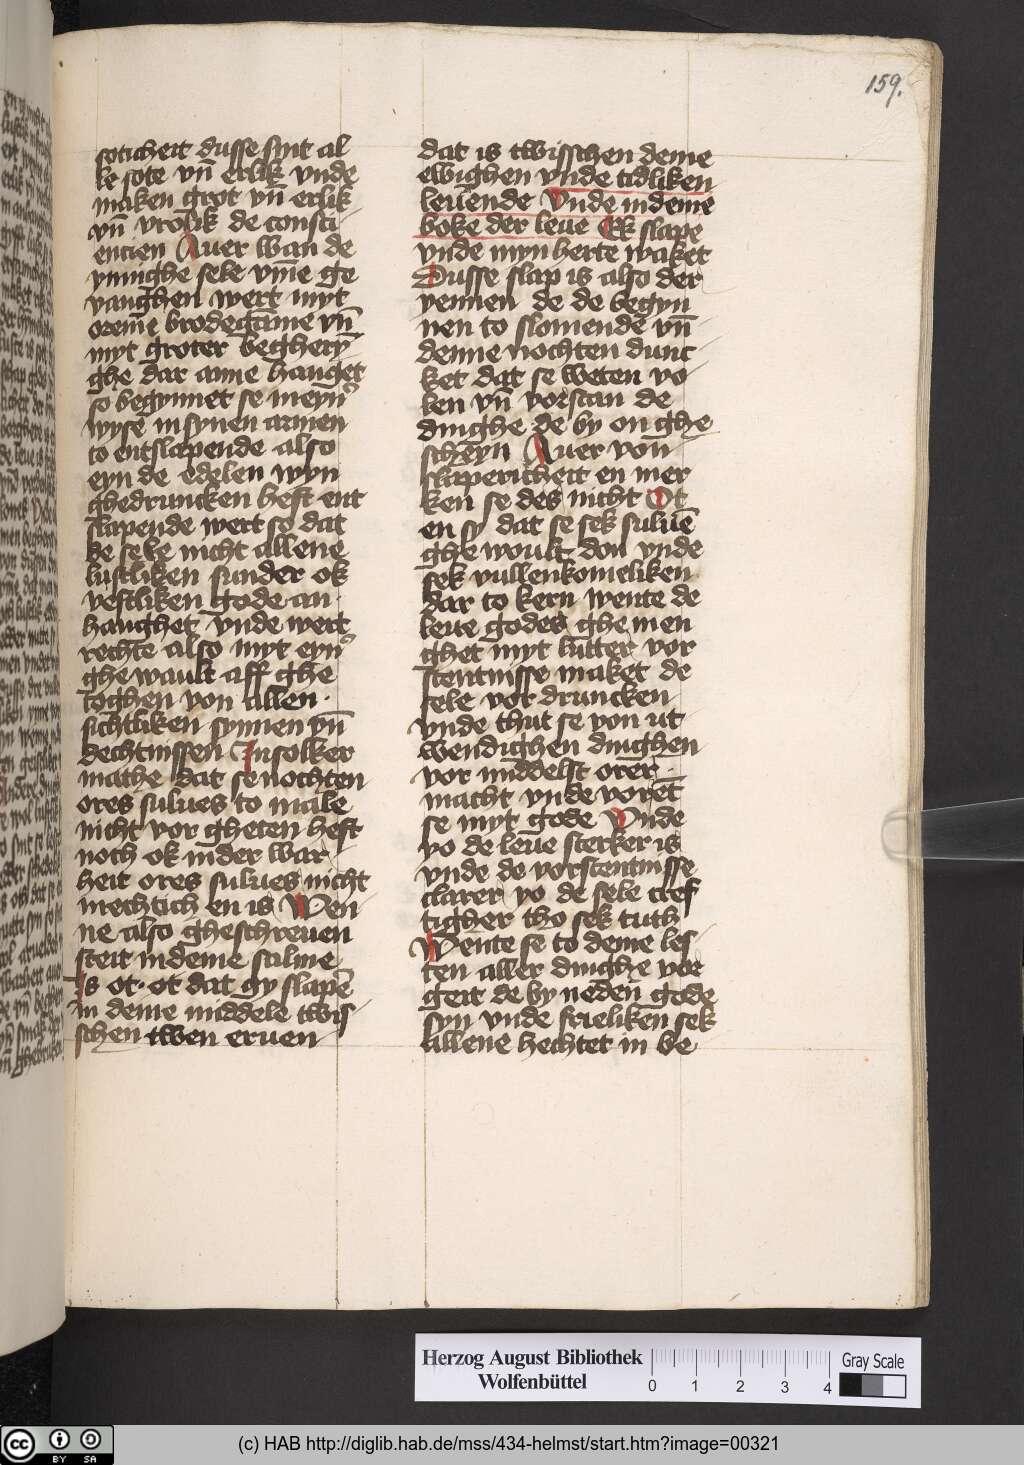 159.
soticheit dusse sint al
le sote vn̄ erlik vnde
maken grot vn̄ erlik
vn̄ vrolik de consci
encien Auer wan de
ynnighe sele vm̄e ge
vanghen wert myt
oreme brodegāme vn̄
myt groter begherȳ
ghe dar anne hanget
so begynnet se in eyn᷑
wyse in synen armen
to entslapende also
eyn de edelen wyn
ghedruncken heft ent
slapende wert so dat
de sele nicht allene
lustliken sunder ok
vestliken gode an
hanghet vnde wert
rechte also myt eyn᷑
ghe wault aff ghe
toghen von allen
sichtliken synnen vn̄
dechtnissen In solker
mathe dat se nochten
ores sulues to male
nicht vor gheten heft
noch ok in der war
heit ores sulues nicht
mechtich en is Wen
ne also gheschreuen
steit in deme salme
Is ot ot dat gy slapē
in deme middele twis
schen twen eruen
dat is twisschen deme
ewighen vnde tidliken
leuende Vnde in deme
boke der leue Ik slape
vnde myn herte waket
Dusse slap is also der
yennen de de begyn
nen to slomende vn̄
denne nochten dunc
ket dat se weten vo
len vn̄ vorstan de
dinghe de by on ghe
scheyn Auer von
slapericheit en mer
ken se des nicht Ot
en sy dat se sek suluē
ghe woult don vnde
sek vullenkomeliken
dar to kern wente de
leue godes ghe men
ghet myt lutter vor
stentnisse maket de
sele vor druncken
vnde thut se von ut
wendighen dinghen
vor middelst orer
macht vnde voret
se myt gode Vnde
yo de leue sterker is
vnde de vorstentnisse
clarer yo de sele cref
tigher tho sek tuth
Wente se to deme les
ten aller dinghe vor
geit de by neden gode
syn vnde frieliken sek
allene hechtet in de
Herzog August Bibliothek
Wolfenbüttel
0 1 2 3 4
Gray Scale
cc BY SA
(c) HAB http://diglib.hab.de/mss/434-helmst/start.htm?image=00321